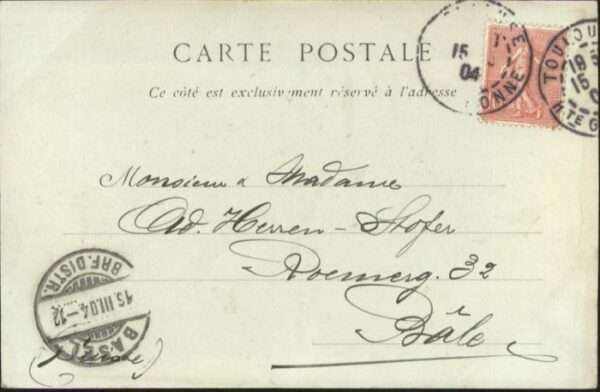 CARTE POSTALE
Ce côté est exclusivement réservé à l'adresse
15
04
ONNE
TOULOU
18
15
HTE G
Monsieur & Madame
Ad. Herren-Stofer
Roemerg. 32
Bâle
(Suisse)
BRF. DISTR.
15.III.04.-12
BASEL